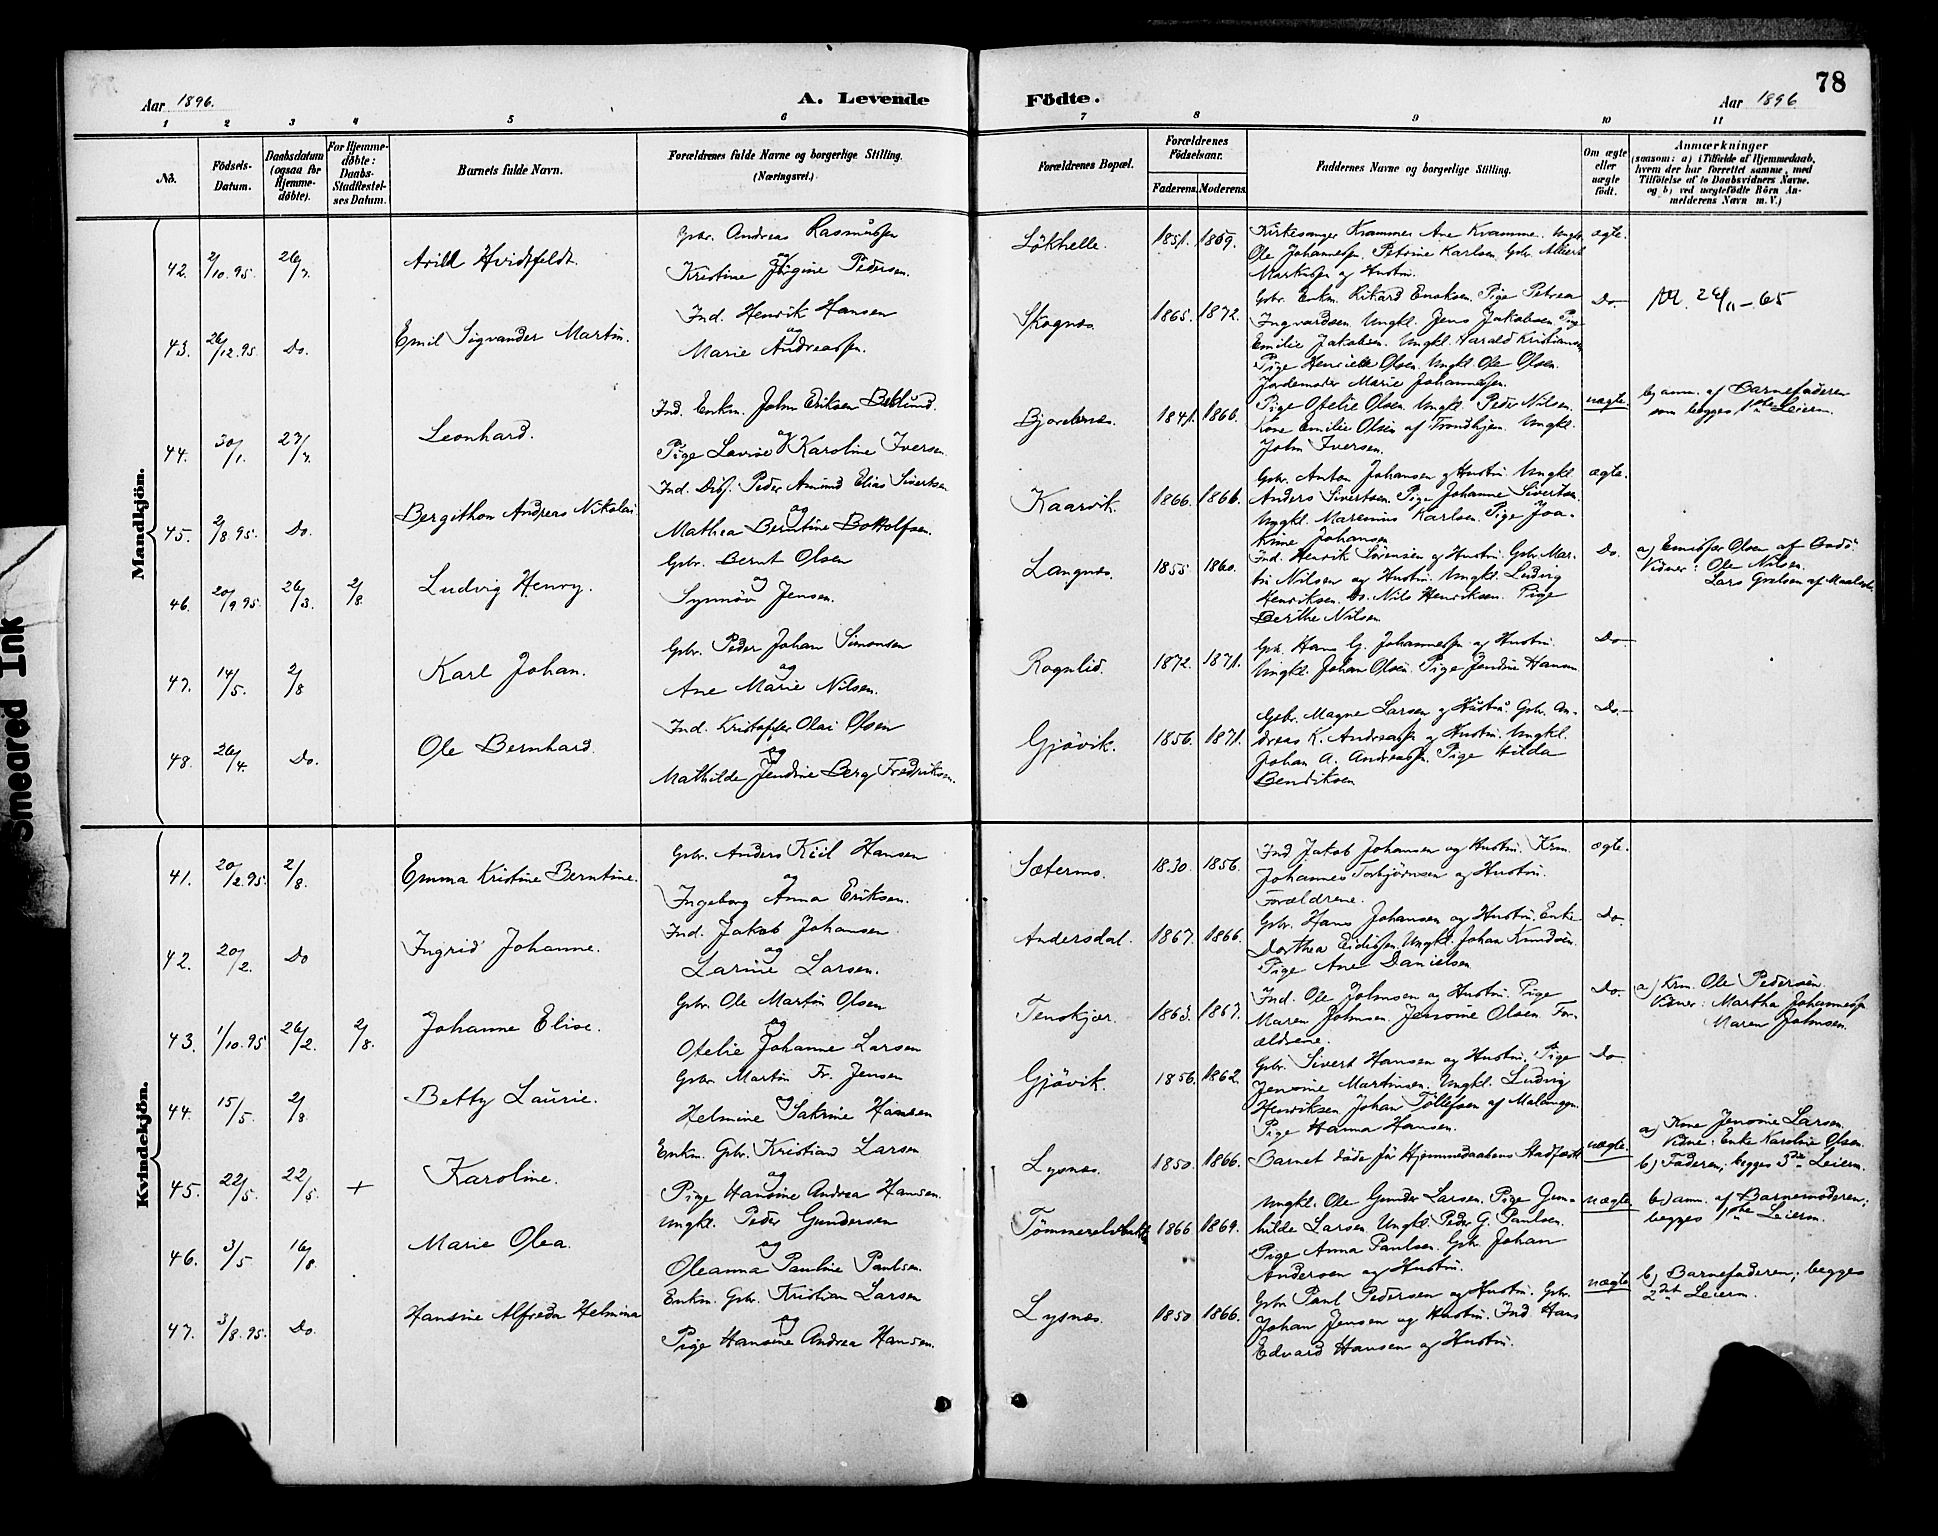 78
Aar 1896.
A. Levende
Födte.
Aar 1896
1 2 3 4 5 6 7 8 9 10 11
No.
Fødsels-Datum.
Daabsdatum (ogsaa for Hjemmedøbte).
For Hjemmedøbte: Daabs-Stadfestelses Datum.
Barnets fulde Navn.
Forældrenes fulde Navne og borgerlige Stilling. (Næringsvei.)
Forældrenes Bopæl.
Forældrenes Fødselsaar.
Faderens. Moderens.
Faddernes Navne og borgerlige Stilling.
Om ægte eller uægte født.
Anmærkninger
(saasom: a) i Tilfælde af Hjemmedaab,
hvem der har forrettet samme, med
Tilføielse af to Daabsvidners Navne,
og b) ved uægtefødte Börn An-
melderens Navn m. V.)
Mandkjön.
42. 2/10.95. 26/7. Arild Hvidtfeldt. Gbr. Andreas Rasmussen og Kristine Pedersen. 1851. 1859. ægte.
Kirkesanger Kramme, Ane Kramme. Ungk.
Ole Johannessen. Petrine Karlsen. Gbr. Albert
Markussen og Hustru.
43. 26/12.95. Do. Emil Sigvander Martin. Ind. Henrik Hansen og Marie Andreassen. Skognes. 1865. 1872. Do
Gbr. Enkm. Rikard Enoksen. Pige Petrea
Ingvardsen. Ungkl. Jens Jakobsen. Pige
Emilie Jakobsen. Ungkl. Harald Kristiansen
Pige Henriette Olsen. Ungkl. Ole Olsen.
Jordemoder Marie Johannessen.
44. 30/1. 27/7. Leonhard. Ind. Enkm. John Eriksen og Pige Lovise Karoline Iversen. 1841. 1866. uægte.
Pige Ofelie Olsen. Ungkl. Peder Nilsen.
Kone Emilie Olsen af Trondhjem. Ungkl.
John Iversen.
b) anm. af Barnefaderen
som begges 1ste Leierm.
45. 2/8 95. Do. Bergithon Andreas Nikolai Ind. Peder Amund Elias Sivertsen og Mathea Berntine Bottolfsen. Kaarvik. 1866. 1866. ægte.
Gbr. Anton Johansen og Hustru. Ungkl.
Anders Sivertsen. Pige Johanne Sivertsen.
Ungkl. Marenius Karlsen. Pige Joa-
kime Johansen
46. 20/9.95. 26/3. 2/8. Ludvig Henry. Gbr. Bernt Olsen og Synnöv Jensen. Langnes. 1855 1860. Do.
Ind. Henrik Sörensen og Hustru. Gbr. Mar-
tin Nilsen og Hustru. Ungkl. Ludvig
Henriksen. Do. Nils Henriksen. Pige
Berthe Nilsen
Vidner: Ole Nilsen.
47. 14/5. 2/8 Karl Johan. Gbr. Peder Johan Simonsen og Ane Marie Nilsen. Rognlid. 1872. 1871. Do
Gbr. Hans G. Johannessen og Hustru.
Ungkl. Johan Olsen. Pige Jendine Hansen
48. 26/4. Do. Ole Bernhard. Ind. Kristoffer Olai Olsen og Mathilde Jendine Berg Fredriksen. Gjövik. 1856. 1871. Do.
Gbr. Magne Larsen og Hustru. Gbr. An-
dreas K. Andreassen og Hustru. Ungkl.
Johan A. Andreassen. Pige Hilda
Bendiksen
Kvindekjön.
41. 20/12.95. 2/8. Emma Kristine Berntine. Gbr. Anders Kiil Hansen og Ingeborg Anna Eriksen. 1830. 1856. ægte.
Ind Jakob Johansen og Hustru. Krm.
Johannes Torbjörnsen og Hustru.
Forældrene.
42. 20/2. Do Ingrid Johanne. Ind. Jakob Johansen og Larine Larsen. Andersdal. 1867. 1866. Do.
Gbr. Hans Johansen og Hustru. Enke
Dorthea Eidissen. Ungkl. Johan Knudsen.
Pige Ane Danielsen
43. 1/10.95. 26/2. 2/8. Johanne Elise. Gbr. Ole Martin Olsen og Ofelie Johanne Larsen Tenskjær. 1863. 1867. Do.
Ind. Ole Johnsen og Hustru. Pige
Maren Johnsen. Jensine Olsen. For-
ældrene.
a) Krm. Ole Pedersen.
Vidner: Martha Johannessen
Maren Johnsen.
44. 15/5. 2/8 Betty Laurie. Gbr. Martin Fr. Jensen og Helmine Sakrine Hansen Gjövik. 1856. 1862. Do
Gbr. Sivert Hansen og Hustru. Pige
Jensine Martinsen. Ungkl. Ludvig
Henriksen. Johan Tollefsen af Malangen.
Pige Hanna Hansen.
45. 22/5. 22/5. + Karoline. Enkm. Gbr. Kristian Larsen og Pige Hansine Andrea Hansen. Lysnes. 1850. 1866. uægte.
Barnet döde för Hjemmedaabens Stadfæst.
a) Kone Jensine Larsen.
Vidne: Enke Karoline Olsen.
b) Faderen; begges 3die Leierm.
46. 3/5 16/8 Marie Olea. Ungkl. Peder Gundersen og Oleanna Pauline Paulsen. 1866 1869. uægte
Ungkl. Ole Gunder Larsen. Pige Gun-
hilde Larsen. Ungkl. Peder G. Paulsen.
Pige Anna Paulsen. Gbr. Johan
Andersen og Hustru.
b) anm. af Barnemoderen;
begges 1ste Leierm.
47. 3/8.95. Do. Hansine Alfreda Helmina Enkm. Gbr. Kristian Larsen og Pige Hansine Andrea Hansen. Lysnes. 1850 1866. uægte
Gbr. Paul Pedersen og Hustru. Gbr.
Johan Jensen og Hustru. Ind Hans
Edvard Hansen og Hustru.
b) Barnefaderen; begges
2det Leierm.
Smeared Ink